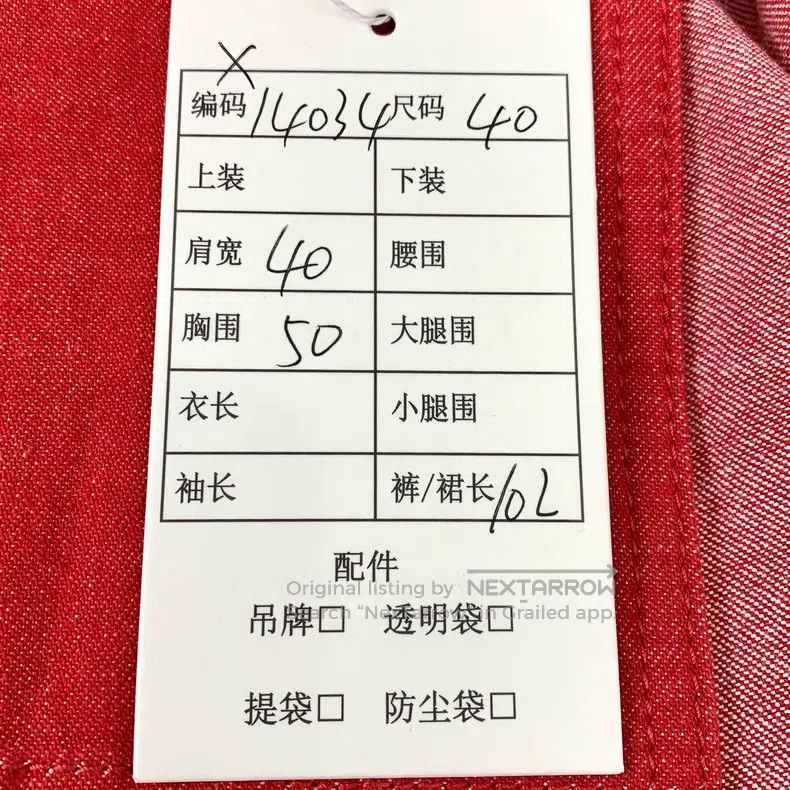 X
编码 14034 尺码 40
上装 下装
肩宽 40 腰围
胸围 50 大腿围
衣长 小腿围
袖长 裤/裙长 102
配件
Original listing by NEXTARROW
Search “Nextarrow” in Grailed app.
吊牌□ 透明袋□
提袋□ 防尘袋□